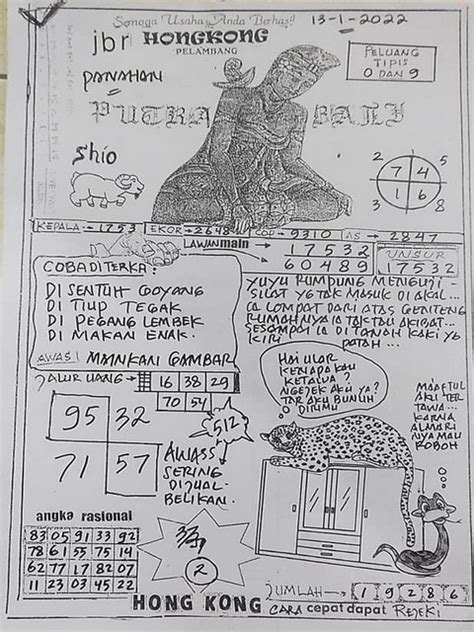 Semoga Usaha Anda Berhasil
13-1-2022
jbr HONGKONG
PELAMBANG
PELUANG
TIPIS
0 DAN 9
PANAHAN
PUTRA BALI
Shio
2 5
7 4
1 6
3 8
KEPALA → 1753 EKOR → 2648 COP → 9310 AS → 2847
LAWAN main → 17532
→ 60489
UNSUR
17532
COBA DITERKA:
DI SENTUH GOYANG
DI TIUP TEGAK
DI PEGANG LEMBEK
DI MAKAN ENAK.
AWAS! MAINKAN GAMBAR
YUYU RUMPUNG MENGUJI-
SILAT YG TAK MASUK DI AKAL...
IA LOMPAT DARI ATAS GENTENG
RUMAHNYA IA TAK TAU AKIBAT...
SESAMPAI IA DI TANAH KAKI YG
KIRI PATAH...
JALUR UANG →
16 38 29
70 54
512
95 32
71 57
AWASS
SERING
DIJUAL-
BELIKAN.
HAI ULAR
KENAPA KAU
KETAWA?
NGEJEK AKU YA?
TAR AKU BUNUH
DIRIMU
MAAF TUL
AKU TER
TAWA...
KARNA
ALMARI
NYA MAU
ROBOH
angka rasional
83 05 91 33 92
78 61 55 75 14
62 77 17 82 07
11 23 03 45 22
2
JUMLAH → 19286
HONG KONG CARA cepat dapat REJEKI